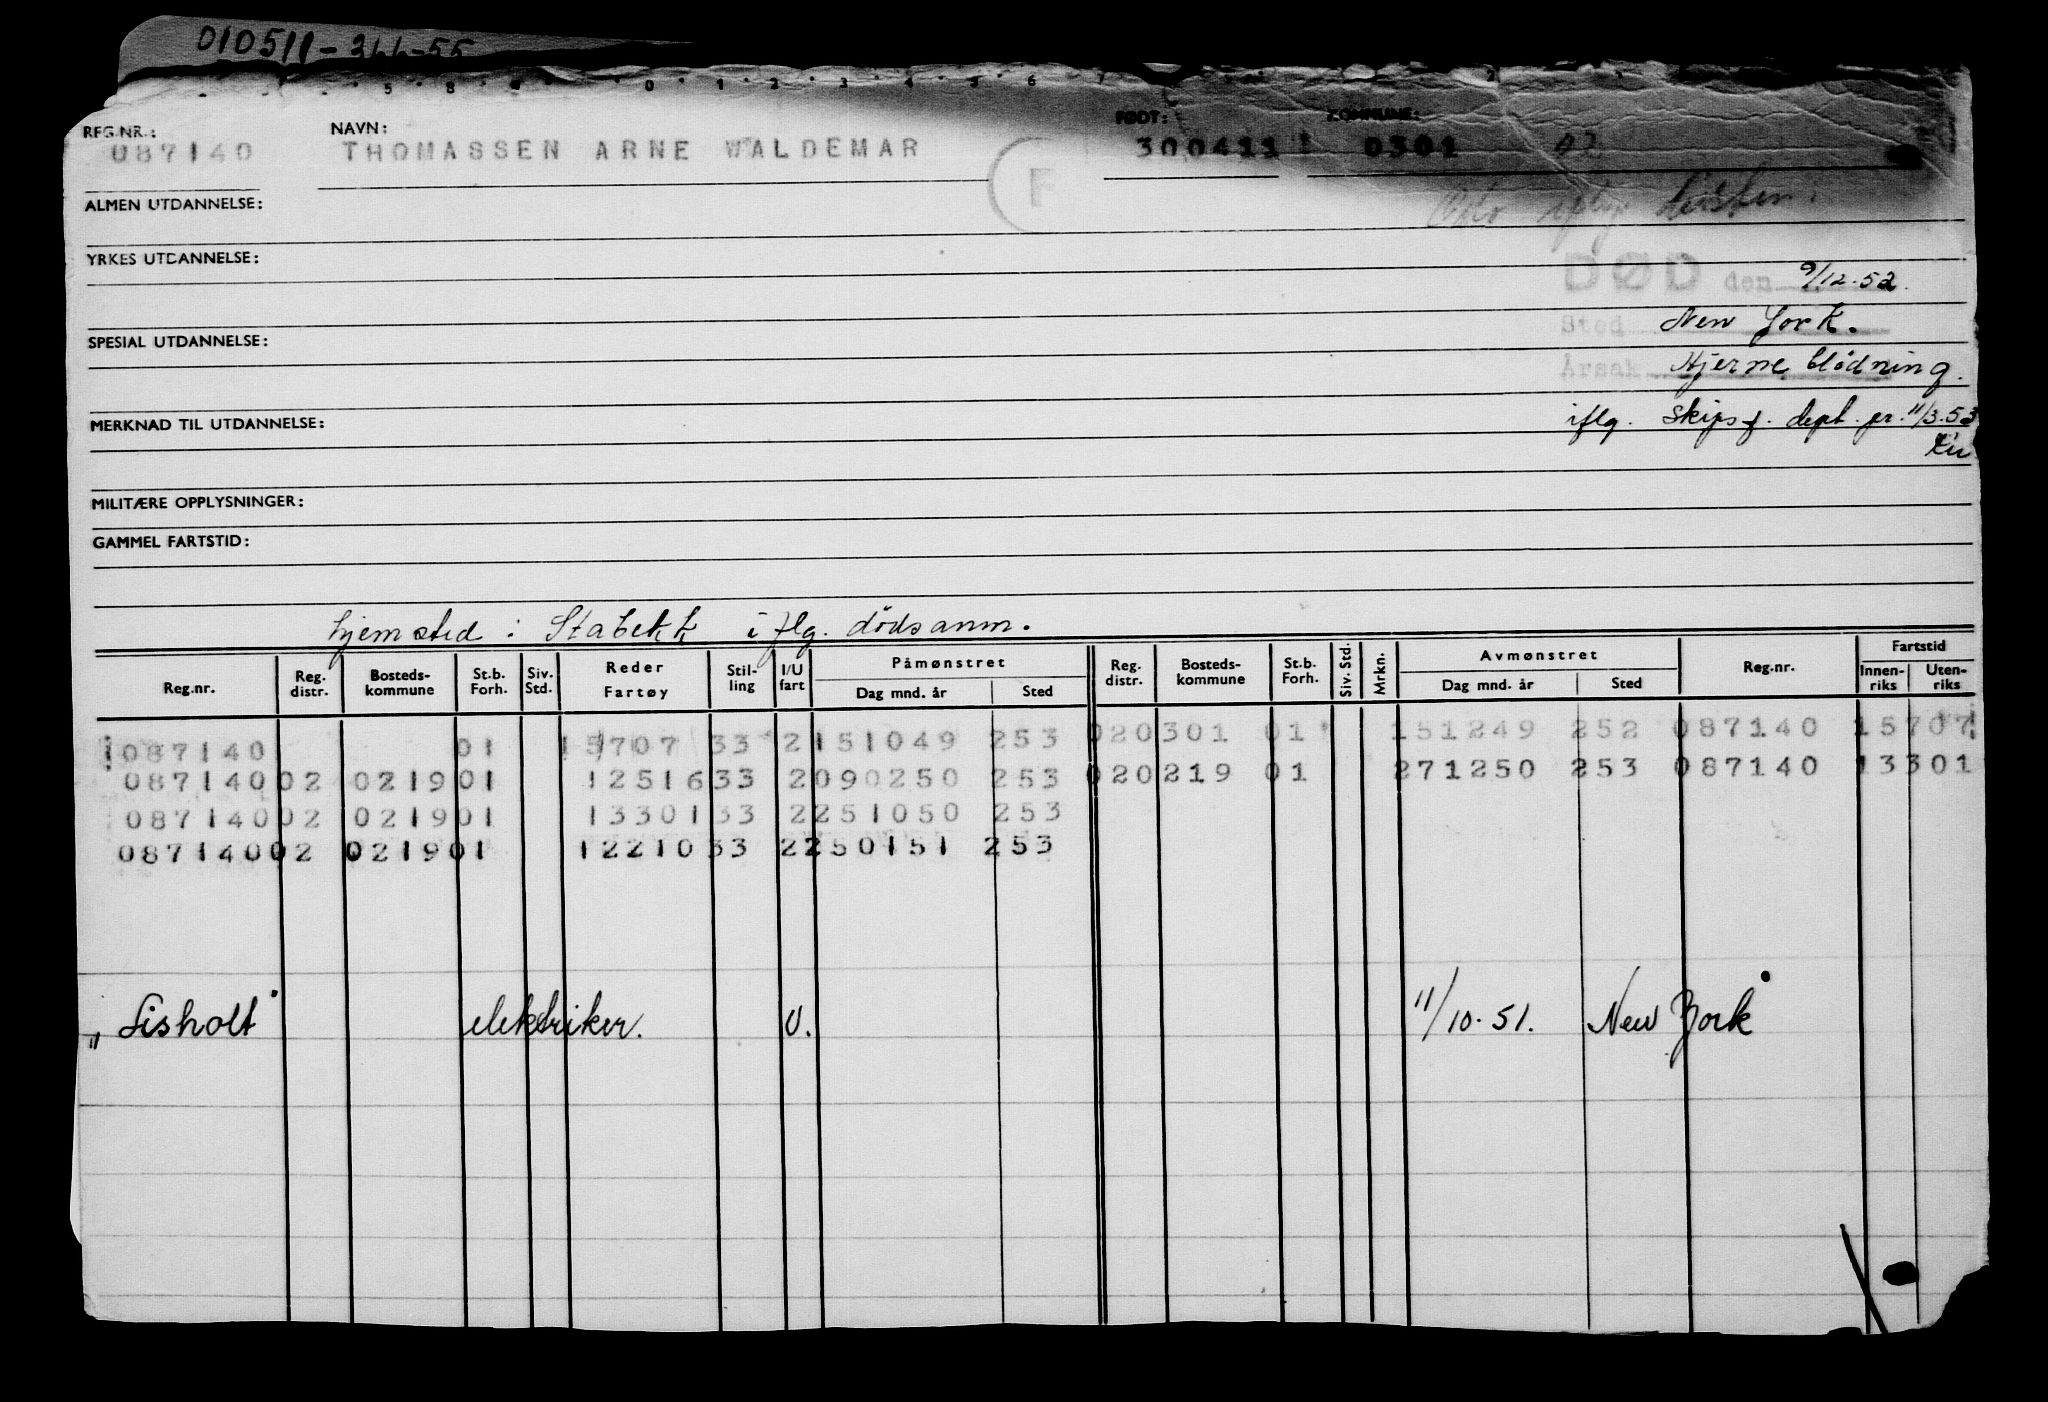 010511-366-55
5 8 0 1 2 3 4 5 6
REG.NR.: NAVN: FØDT: KOMMUNE:
087140 THOMASSEN ARNE WALDEMAR 300411 0301 02
F
ALMEN UTDANNELSE:
Oslo iflg. listen:
YRKES UTDANNELSE:
DØD den 9/12.52.
Sted New York.
SPESIAL UTDANNELSE:
Årsak Hjerneblödning.
MERKNAD TIL UTDANNELSE:
iflg. Skipsf. dept. pr. 11/3.53
MILITÆRE OPPLYSNINGER:
GAMMEL FARTSTID:
hjemsted: Stabekk iflg. dödsanm.
Reg.nr. Reg. distr. Bosteds-kommune St.b. Forh. Siv. Std. Reder Fartøy Stil-ling I/U fart Påmønstret Dag mnd. år Sted Reg. distr. Bosteds-kommune St.b. Forh. Siv. Std. Mrkn. Avmønstret Dag mnd. år Sted Reg.nr. Fartstid Innen-riks Uten-riks
087140 01 15707 33 2 151049 253 02 0301 01 151249 252 087140 15707
087140 02 0219 01 12516 33 2 090250 253 02 0219 01 271250 253 087140 13301
087140 02 0219 01 13301 33 2 251050 253
087140 02 0219 01 12210 33 2 250151 253
"Lisholt" elektriker. U. 11/10.51. New York